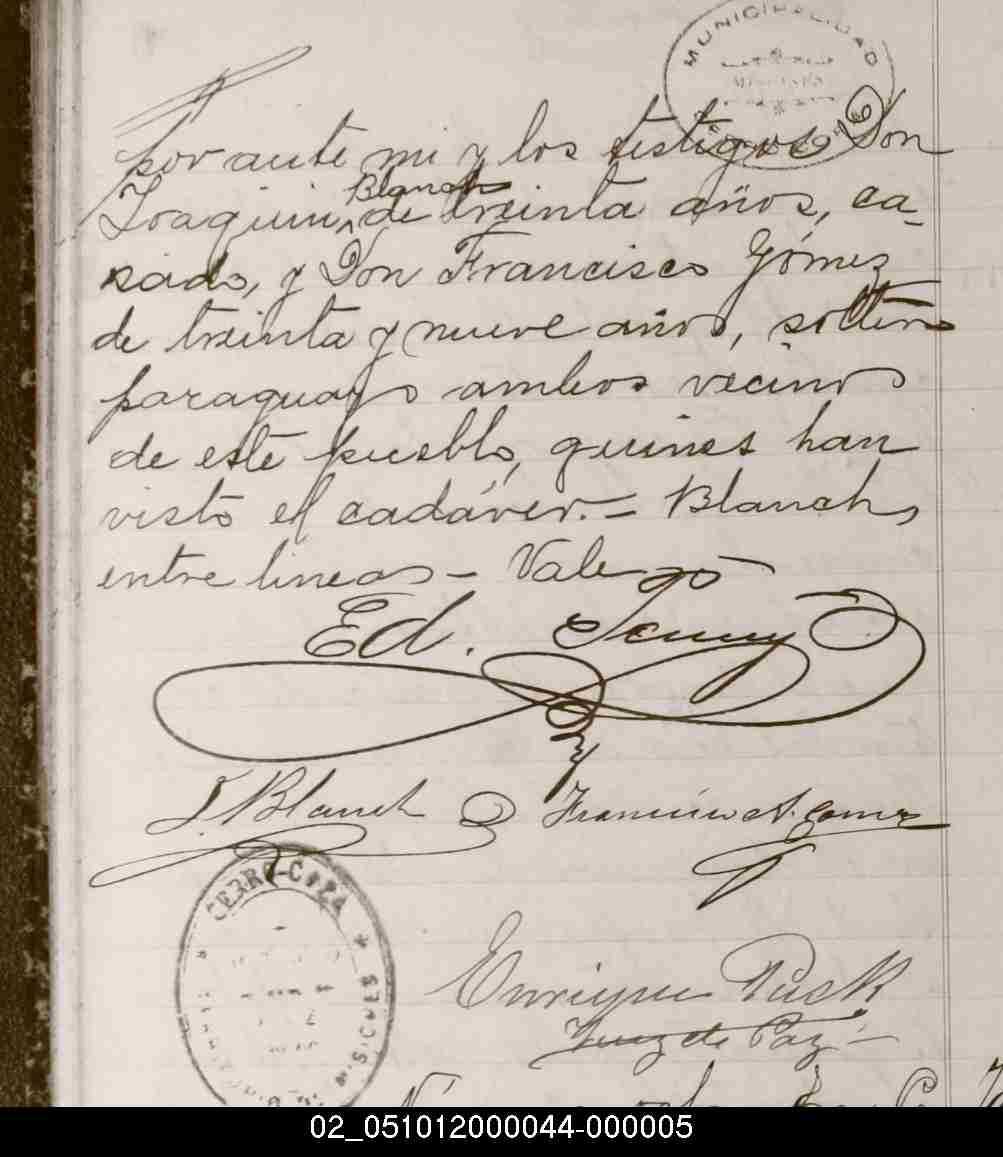 MUNICIPALIDAD
por ante mi y los testigos Don
Joaquin, Blanch de treinta años, ca-
sado, y Don Francisco Gómez
de treinta y nueve años, soltero
paraguayo ambos vecinos
de este pueblo, quienes han
visto el cadáver.- Blanch,
entre lineas - Vale
Ed.
J. Blanch Francisco A. Gomez
CERRO-CORÁ
MISIONES
Enrique
Juez de Paz
02_051012000044-000005